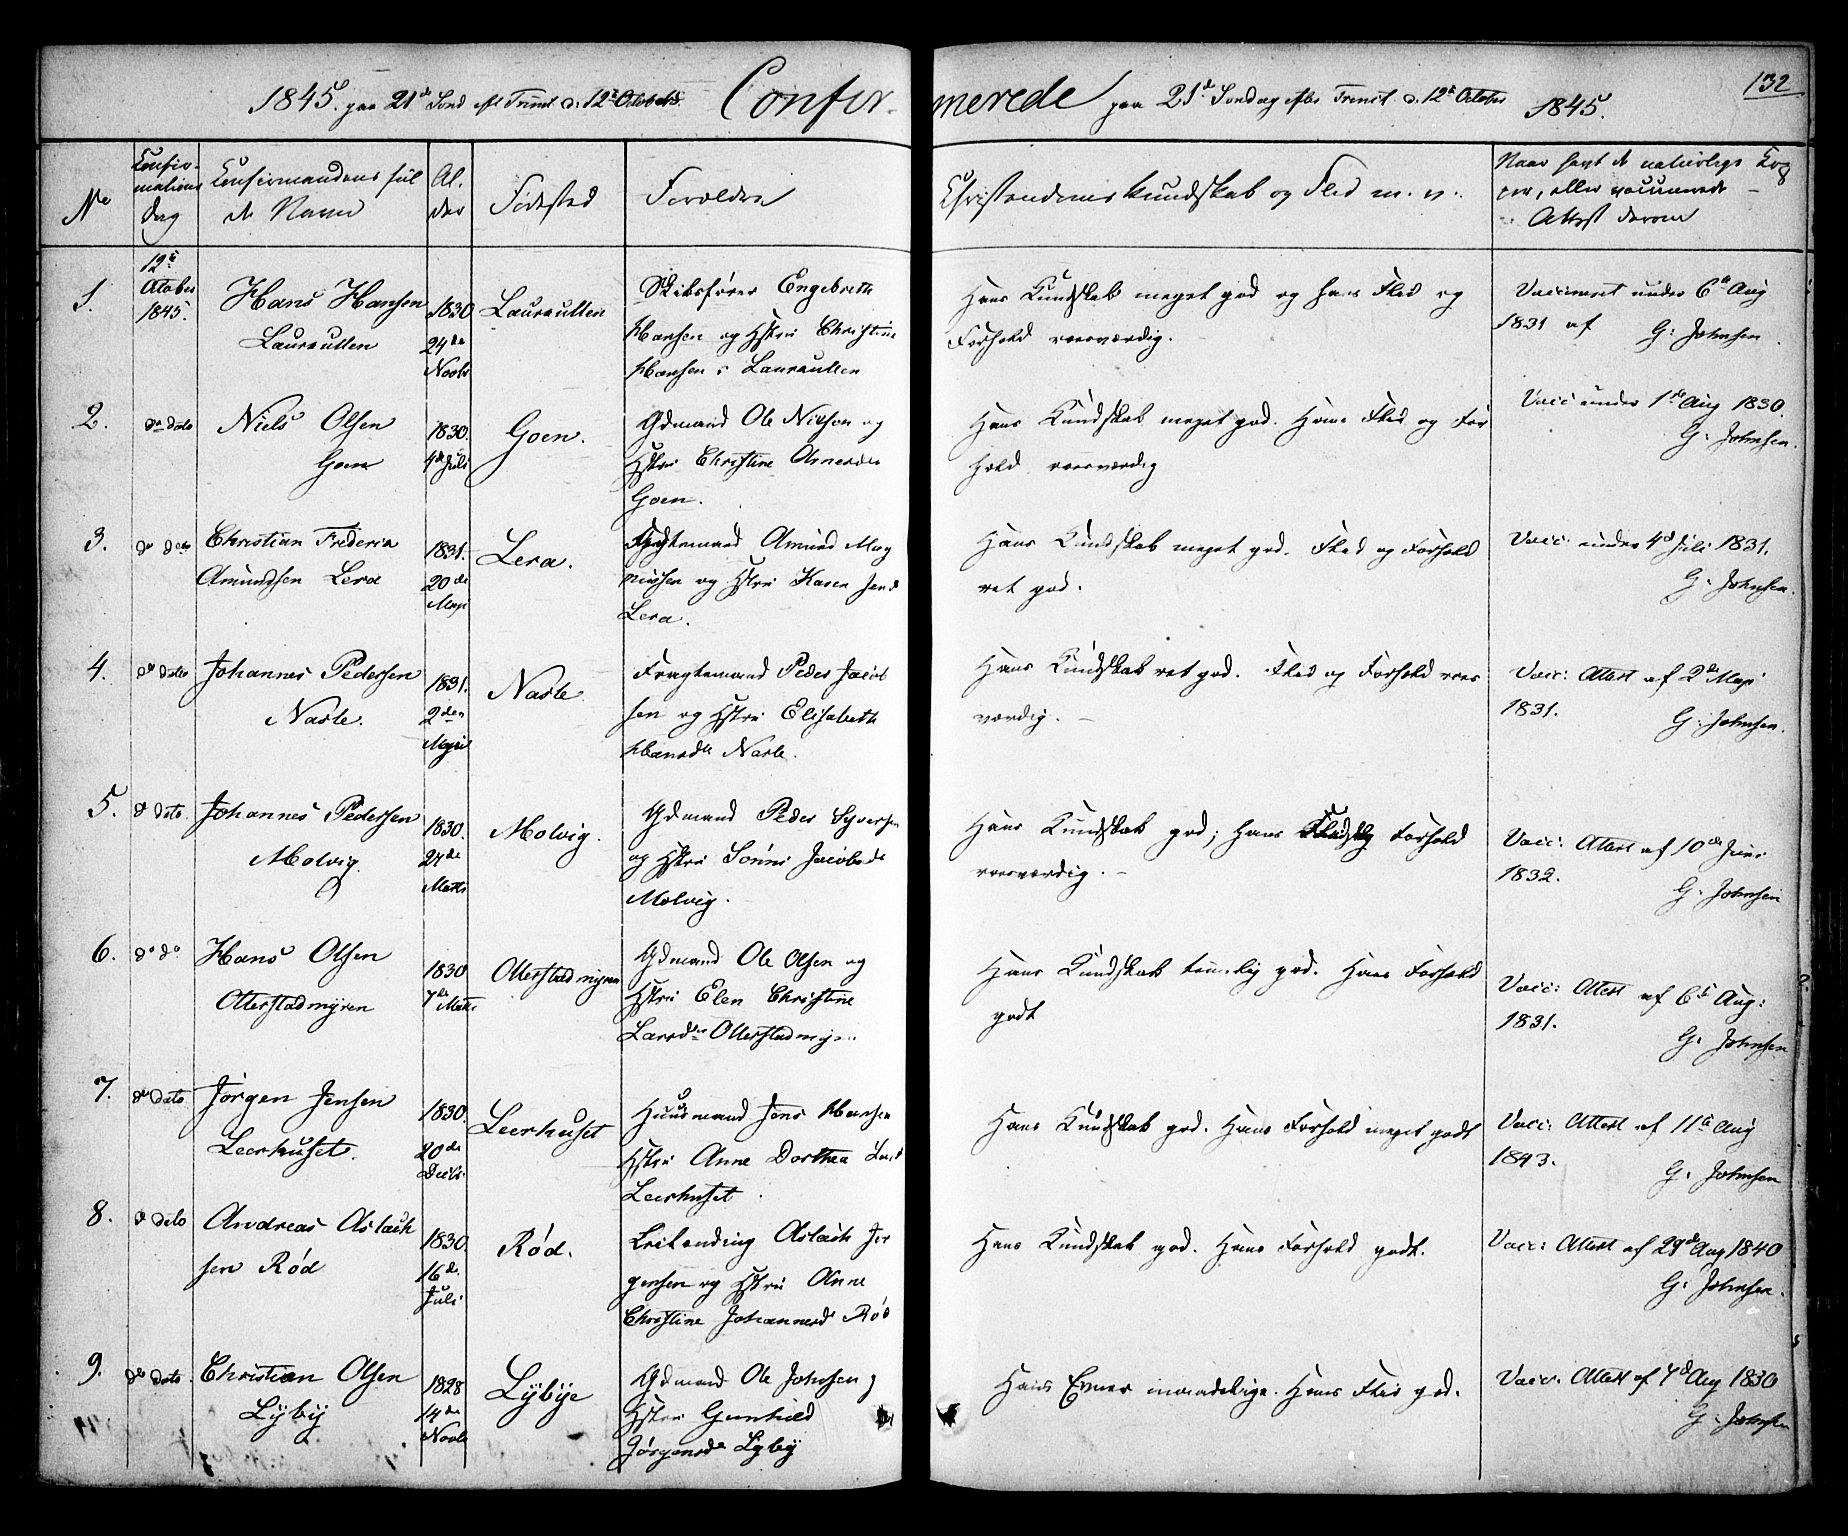 1845. paa 21de Sönd eft Trinit d. 12te October Confir-
merede paa 21de Söndag efter Trinit d. 12te October 1845.
132
No
Confir-
mations
dag
Confirmandens ful
de Navn
Al-
der
Födested
Forældre
Christendomskundskab og Flid m. v.
Naar havt de naturlige Kop
per, eller vaccinerede
Attest derom
1.
12te
October
1845.
Hans Hansen
Lauraullen
1830
24de
Novbr
Lauraullen
Skibsfører Engebreth
Hansen og Hstru Christine
Hansen i Lauraullen
Hans Kundskab meget god og hans Flid og
Forhold roesværdig.
Vaccineret under 6te Aug
1831 af G. Johnsen.
2.
do dato
Niels Olsen
Goen
1830.
4de Juli
Goen.
Gdmand Ole Nielsen og
Hstru Christine Arnesdr
Goen.
Hans Kundskab meget god. Hans Flid og For
hold roesværdig
Vacc under 1ste Aug 1830.
G. Johnsen.
3.
do dato
Christian Frederic
Amundsen Lera
1831.
20de
Maji
Lera.
Fragtemand Amund Mag
nussen og Hstru Karen
Lera.
Hans Kundskab meget god. Flid og Forhold
ret god.
Vacc. under 4de Juli 1831.
G. Johnsen.
4.
do dato
Johannes Pedersen
Narle.
1831.
2den
Maji
Narle
Fragtemand Peder Jacob
sen og Hstru Elisabeth
Hansdr Narle.
Hans Kundskab ret god. Flid og Forhold roes
værdig. -
Vacc: Attest af 2de Maji
1831.
G. Johnsen.
5.
do dato
Johannes Pedersen
Molvig.
1830.
24de
Marts
Molvig.
Gdmand Peder Syversen
og Hstru Jacobsdr
Molvig.
Hans Kundskab god; hans Forhold
roesværdig. -
Vacc: Attest af 10de Juni
1832.
G. Johnsen
6.
do do
Hans Olsen
Otterstadmyren
1830
7de Marts
Otterstadmyren
Gdmand Ole Olsen og
Hstru Elen Christine
Larsdr Otterstadmyr
Hans Kundskab temelig god. Hans Forhold
godt
Vacc: Attest af 6te Aug:
1831.
G. Johnsen
7.
do dato
Jörgen Jensen
Leerhuset.
1830.
20de
Decbr.
Leerhuset
Huusmand Jens Hansen
Hstru Anne Dorthea
Leerhuset.
Hans Kundskab god. Hans Forhold meget godt
Vacc: Attest af 11te Aug
1843.
G. Johnsen
8.
do dato
Andreas Aslach
sen Röd
1830.
16de
Juli
Röd.
Aslach Jör
gensen og Hstru Anne
Christine Johannesdr Röd
Hans Kundskab god. Hans Forhold godt.
Vacc: Attest af 29de Aug 1840
G. Johnsen.
9.
do dato
Christian Olsen
Lÿbÿ
1828
14de
Novbr
Lÿbÿe
Gdmand Ole Johnsen og
Hstru Gunhild
Jörgensdr Lÿbÿ
Hans Evner maadelige. Hans Flid god.
Vacc. Attest af 7de Aug 1830
G. Johnsen